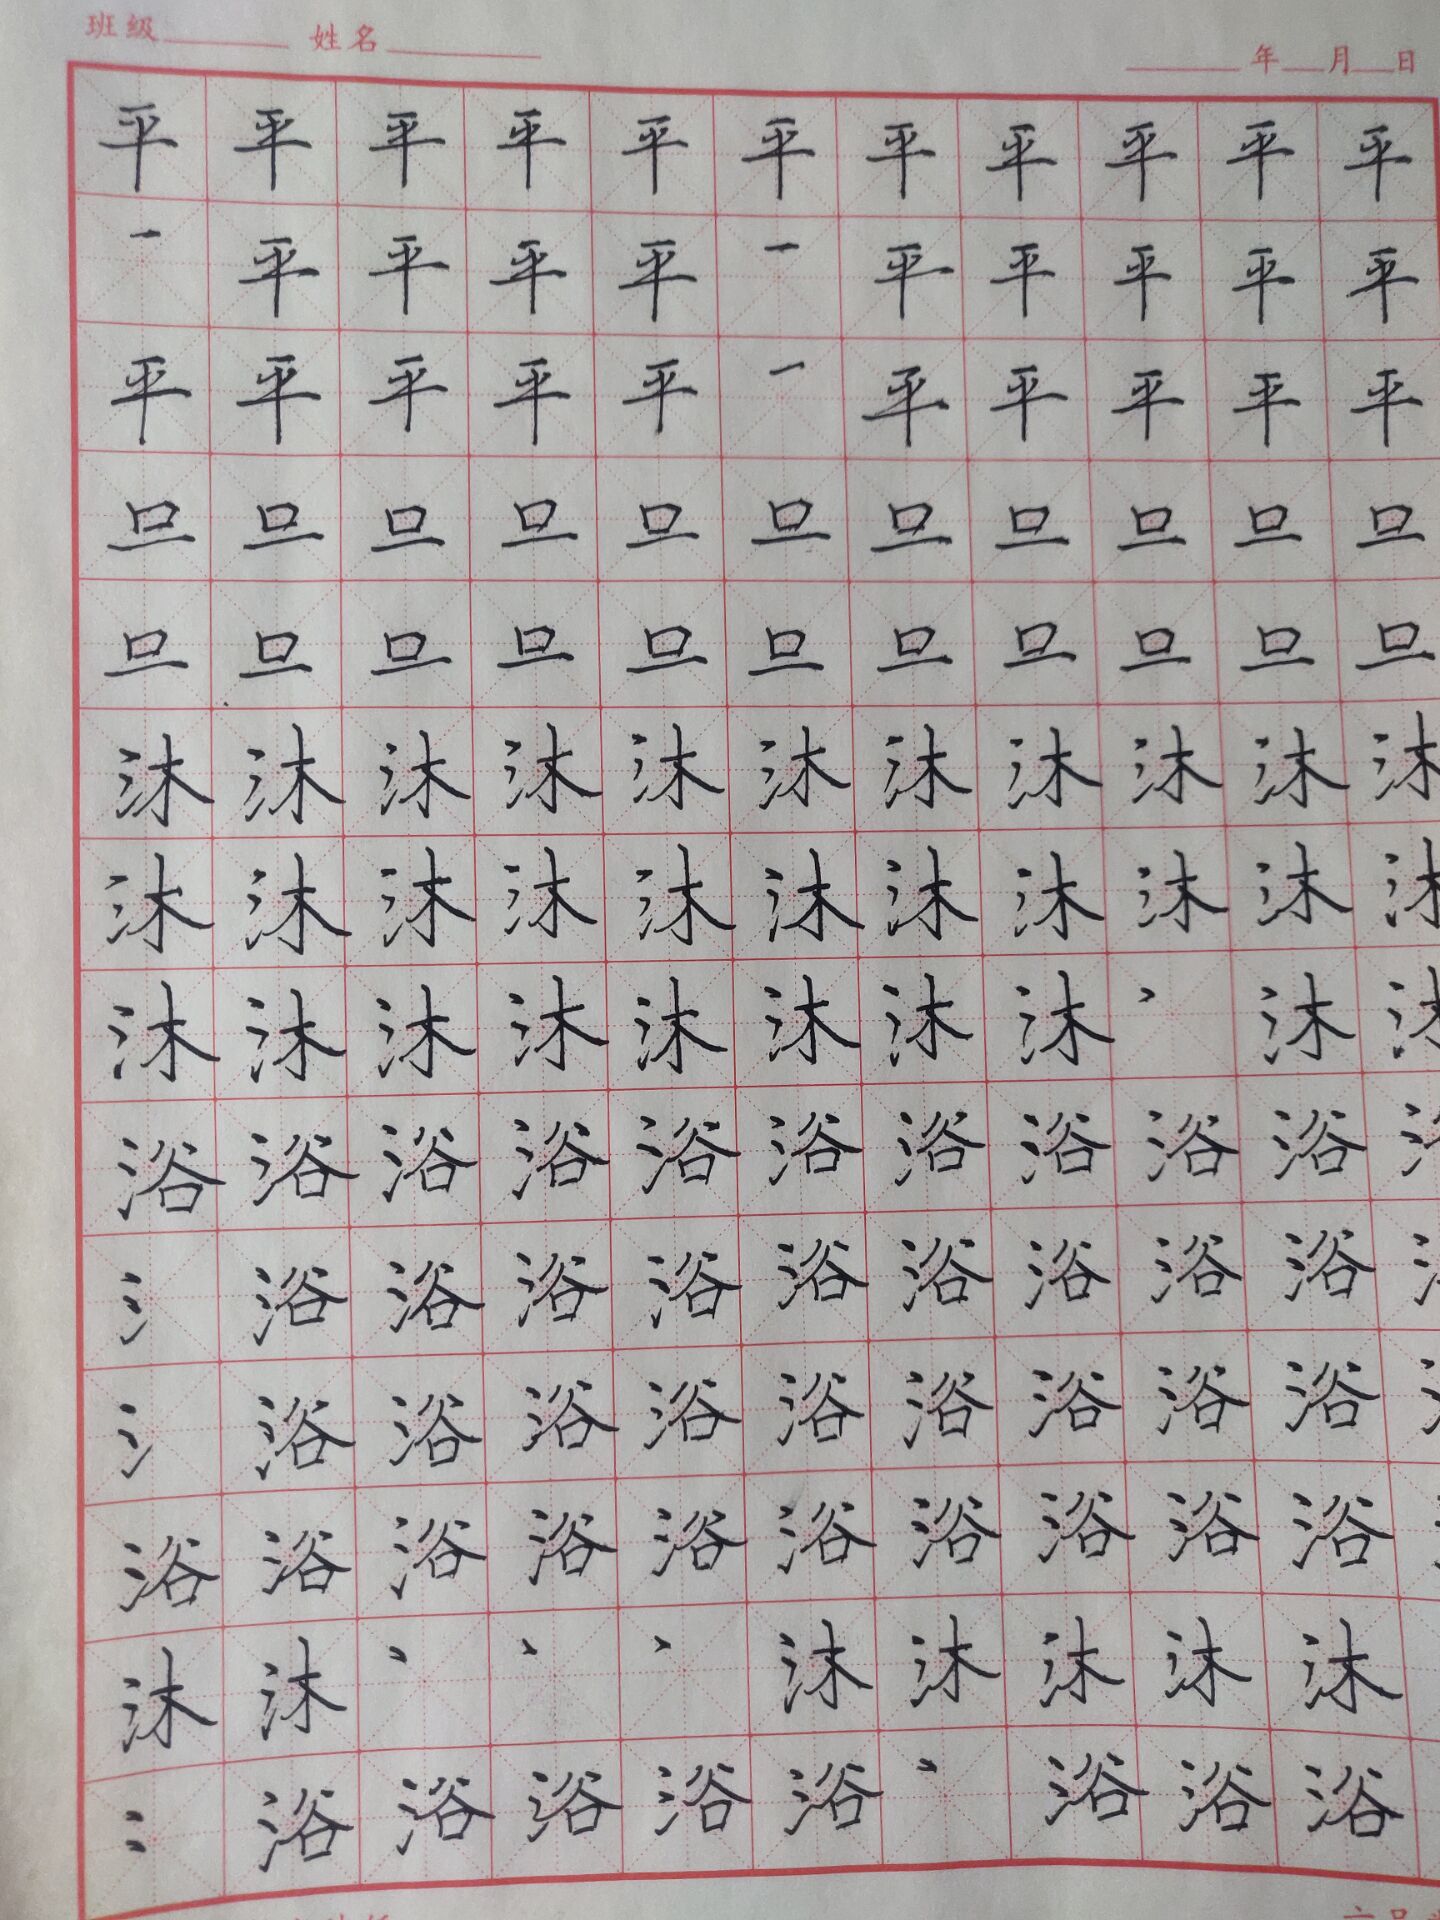 班级 姓名 年 月 日
平平平平平平平平平平平
一平平平平一平平平平平
平平平平平一平平平平平
旦旦旦旦旦旦旦旦旦旦旦
旦旦旦旦旦旦旦旦旦旦旦
沐沐沐沐沐沐沐沐沐沐沐
沐沐沐沐沐沐沐沐沐沐沐
沐沐沐沐沐沐沐沐丶沐沐
浴浴浴浴浴浴浴浴浴浴
氵浴浴浴浴浴浴浴浴浴
氵浴浴浴浴浴浴浴浴浴
浴浴浴浴浴浴浴浴浴浴
沐沐丶丶丶沐沐沐沐沐
冫浴浴浴浴浴丶浴浴浴